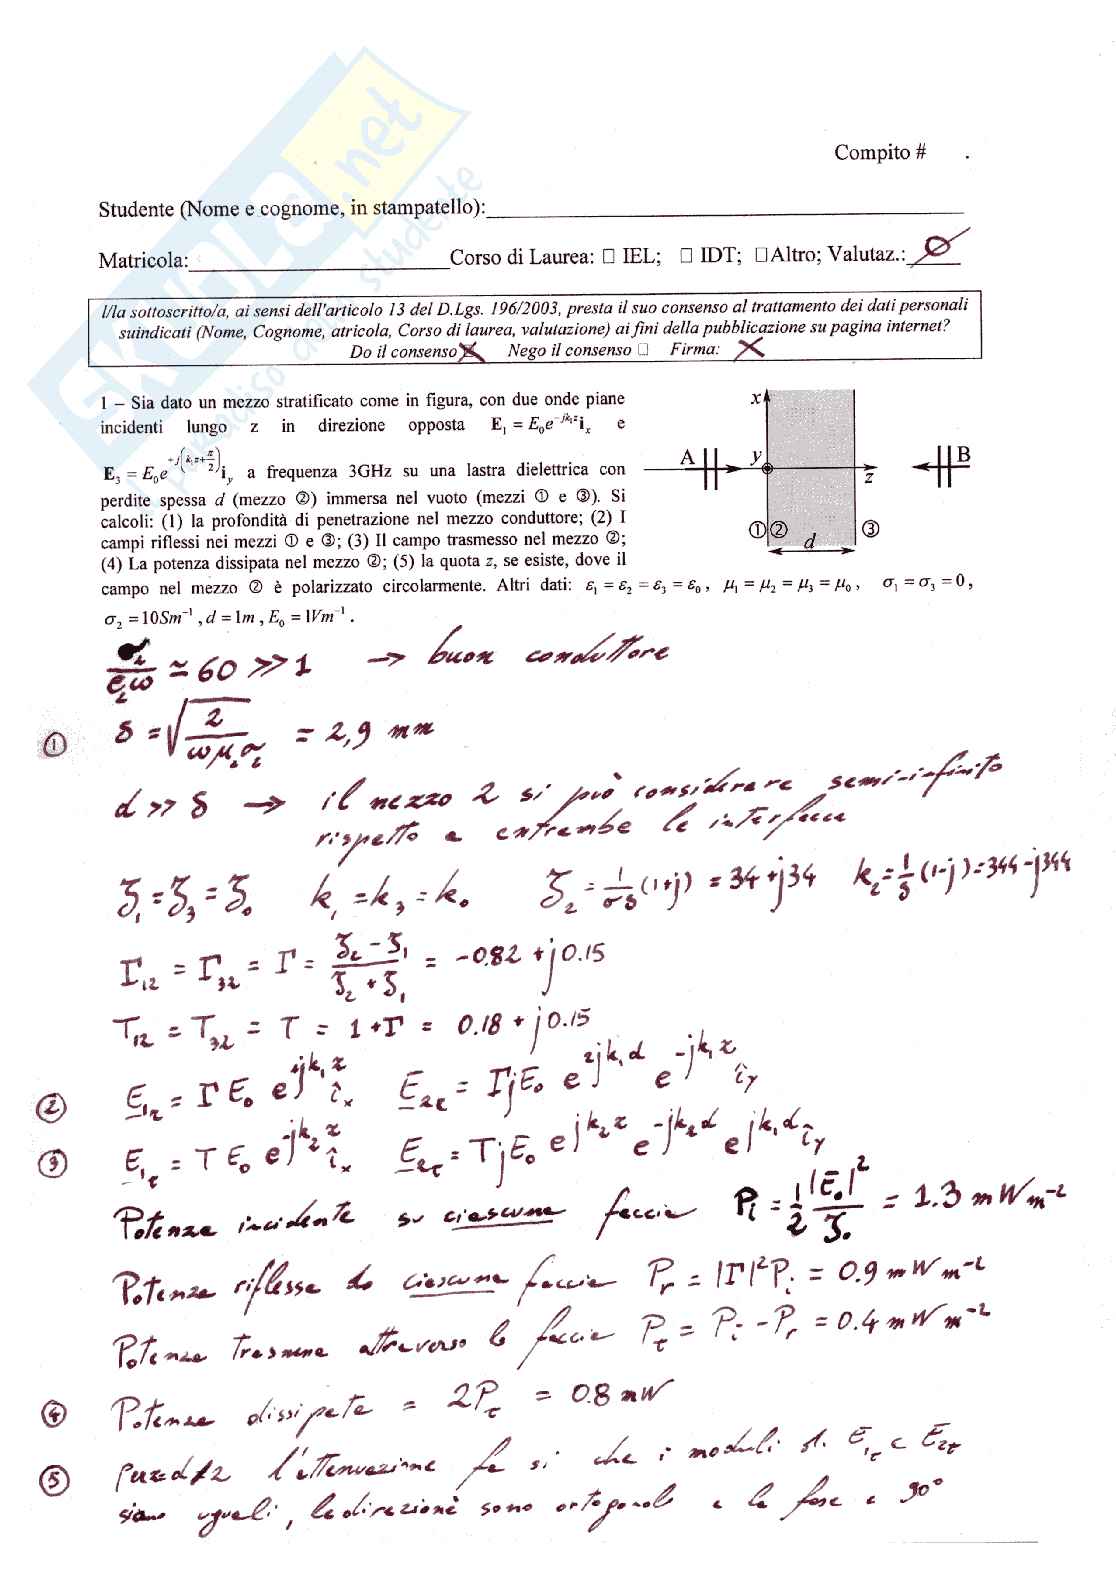 SKUOLA.net
il paradiso dello studente
Compito # .
Studente (Nome e cognome, in stampatello):
Matricola: Corso di Laurea: □ IEL; □ IDT; □Altro; Valutaz.: Ø
I/la sottoscritto/a, ai sensi dell'articolo 13 del D.Lgs. 196/2003, presta il suo consenso al trattamento dei dati personali
suindicati (Nome, Cognome, atricola, Corso di laurea, valutazione) ai fini della pubblicazione su pagina internet?
Do il consenso ☒ Nego il consenso □ Firma: X
1 – Sia dato un mezzo stratificato come in figura, con due onde piane
incidenti lungo z in direzione opposta E₁ = E₀e^{-jk₁z} i_x e
E₃ = E₀e^{+j(k₁z+π/2)} i_y a frequenza 3GHz su una lastra dielettrica con
perdite spessa d (mezzo ②) immersa nel vuoto (mezzi ① e ③). Si
calcoli: (1) la profondità di penetrazione nel mezzo conduttore; (2) I
campi riflessi nei mezzi ① e ③; (3) Il campo trasmesso nel mezzo ②;
(4) La potenza dissipata nel mezzo ②; (5) la quota z, se esiste, dove il
campo nel mezzo ② è polarizzato circolarmente. Altri dati: ε₁ = ε₂ = ε₃ = ε₀, μ₁ = μ₂ = μ₃ = μ₀, σ₁ = σ₃ = 0,
σ₂ = 10Sm⁻¹, d = 1m, E₀ = 1Vm⁻¹.
x
A y B
z
① ② ③
d
σ₂/(ε₂ω) ≃ 60 >> 1 → buon conduttore
① δ = √(2/(ωμ₂σ₂)) = 2,9 mm
d >> δ → il mezzo 2 si può considerare semi-infinito
rispetto a entrambe le interfacce
ζ₁ = ζ₃ = ζ₀ k₁ = k₃ = k₀ ζ₂ = 1/(σδ) (1+j) = 34 + j34 k₂ = 1/δ (1-j) = 344 - j344
Γ₁₂ = Γ₃₂ = Γ = (ζ₂ - ζ₁)/(ζ₂ + ζ₁) = -0.82 + j0.15
T₁₂ = T₃₂ = T = 1 + Γ = 0.18 + j0.15
② E₁r = Γ E₀ e^{+jk₁z} i_x E₂r = Γ j E₀ e^{2jk₁d} e^{-jk₁z} i_y
③ E₁t = T E₀ e^{-jk₂z} i_x E₂t = T j E₀ e^{jk₂z} e^{-jk₂d} e^{jk₁d} i_y
Potenza incidente su ciascuna faccia P_i = 1/2 |E₀|²/ζ₀ = 1.3 mW m⁻²
Potenza riflessa da ciascuna faccia P_r = |Γ|² P_i = 0.9 mW m⁻²
Potenza trasmessa attraverso la faccia P_t = P_i - P_r = 0.4 mW m⁻²
④ Potenza dissipata = 2P_t = 0.8 mW
⑤ Per z=d/2 l'attenuazione fa si che i moduli di E₁t e E₂t
siano uguali, le direzioni sono ortogonali e la fase è 90°